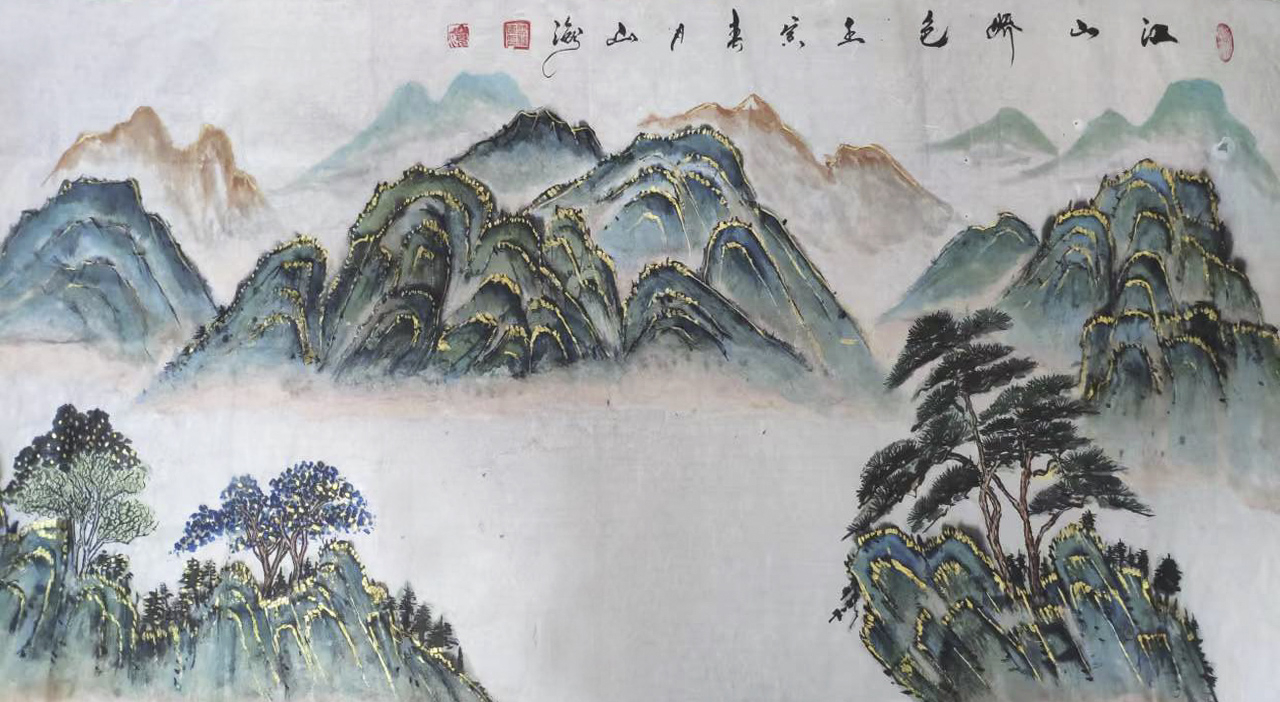 江山娇色壬寅春月山海